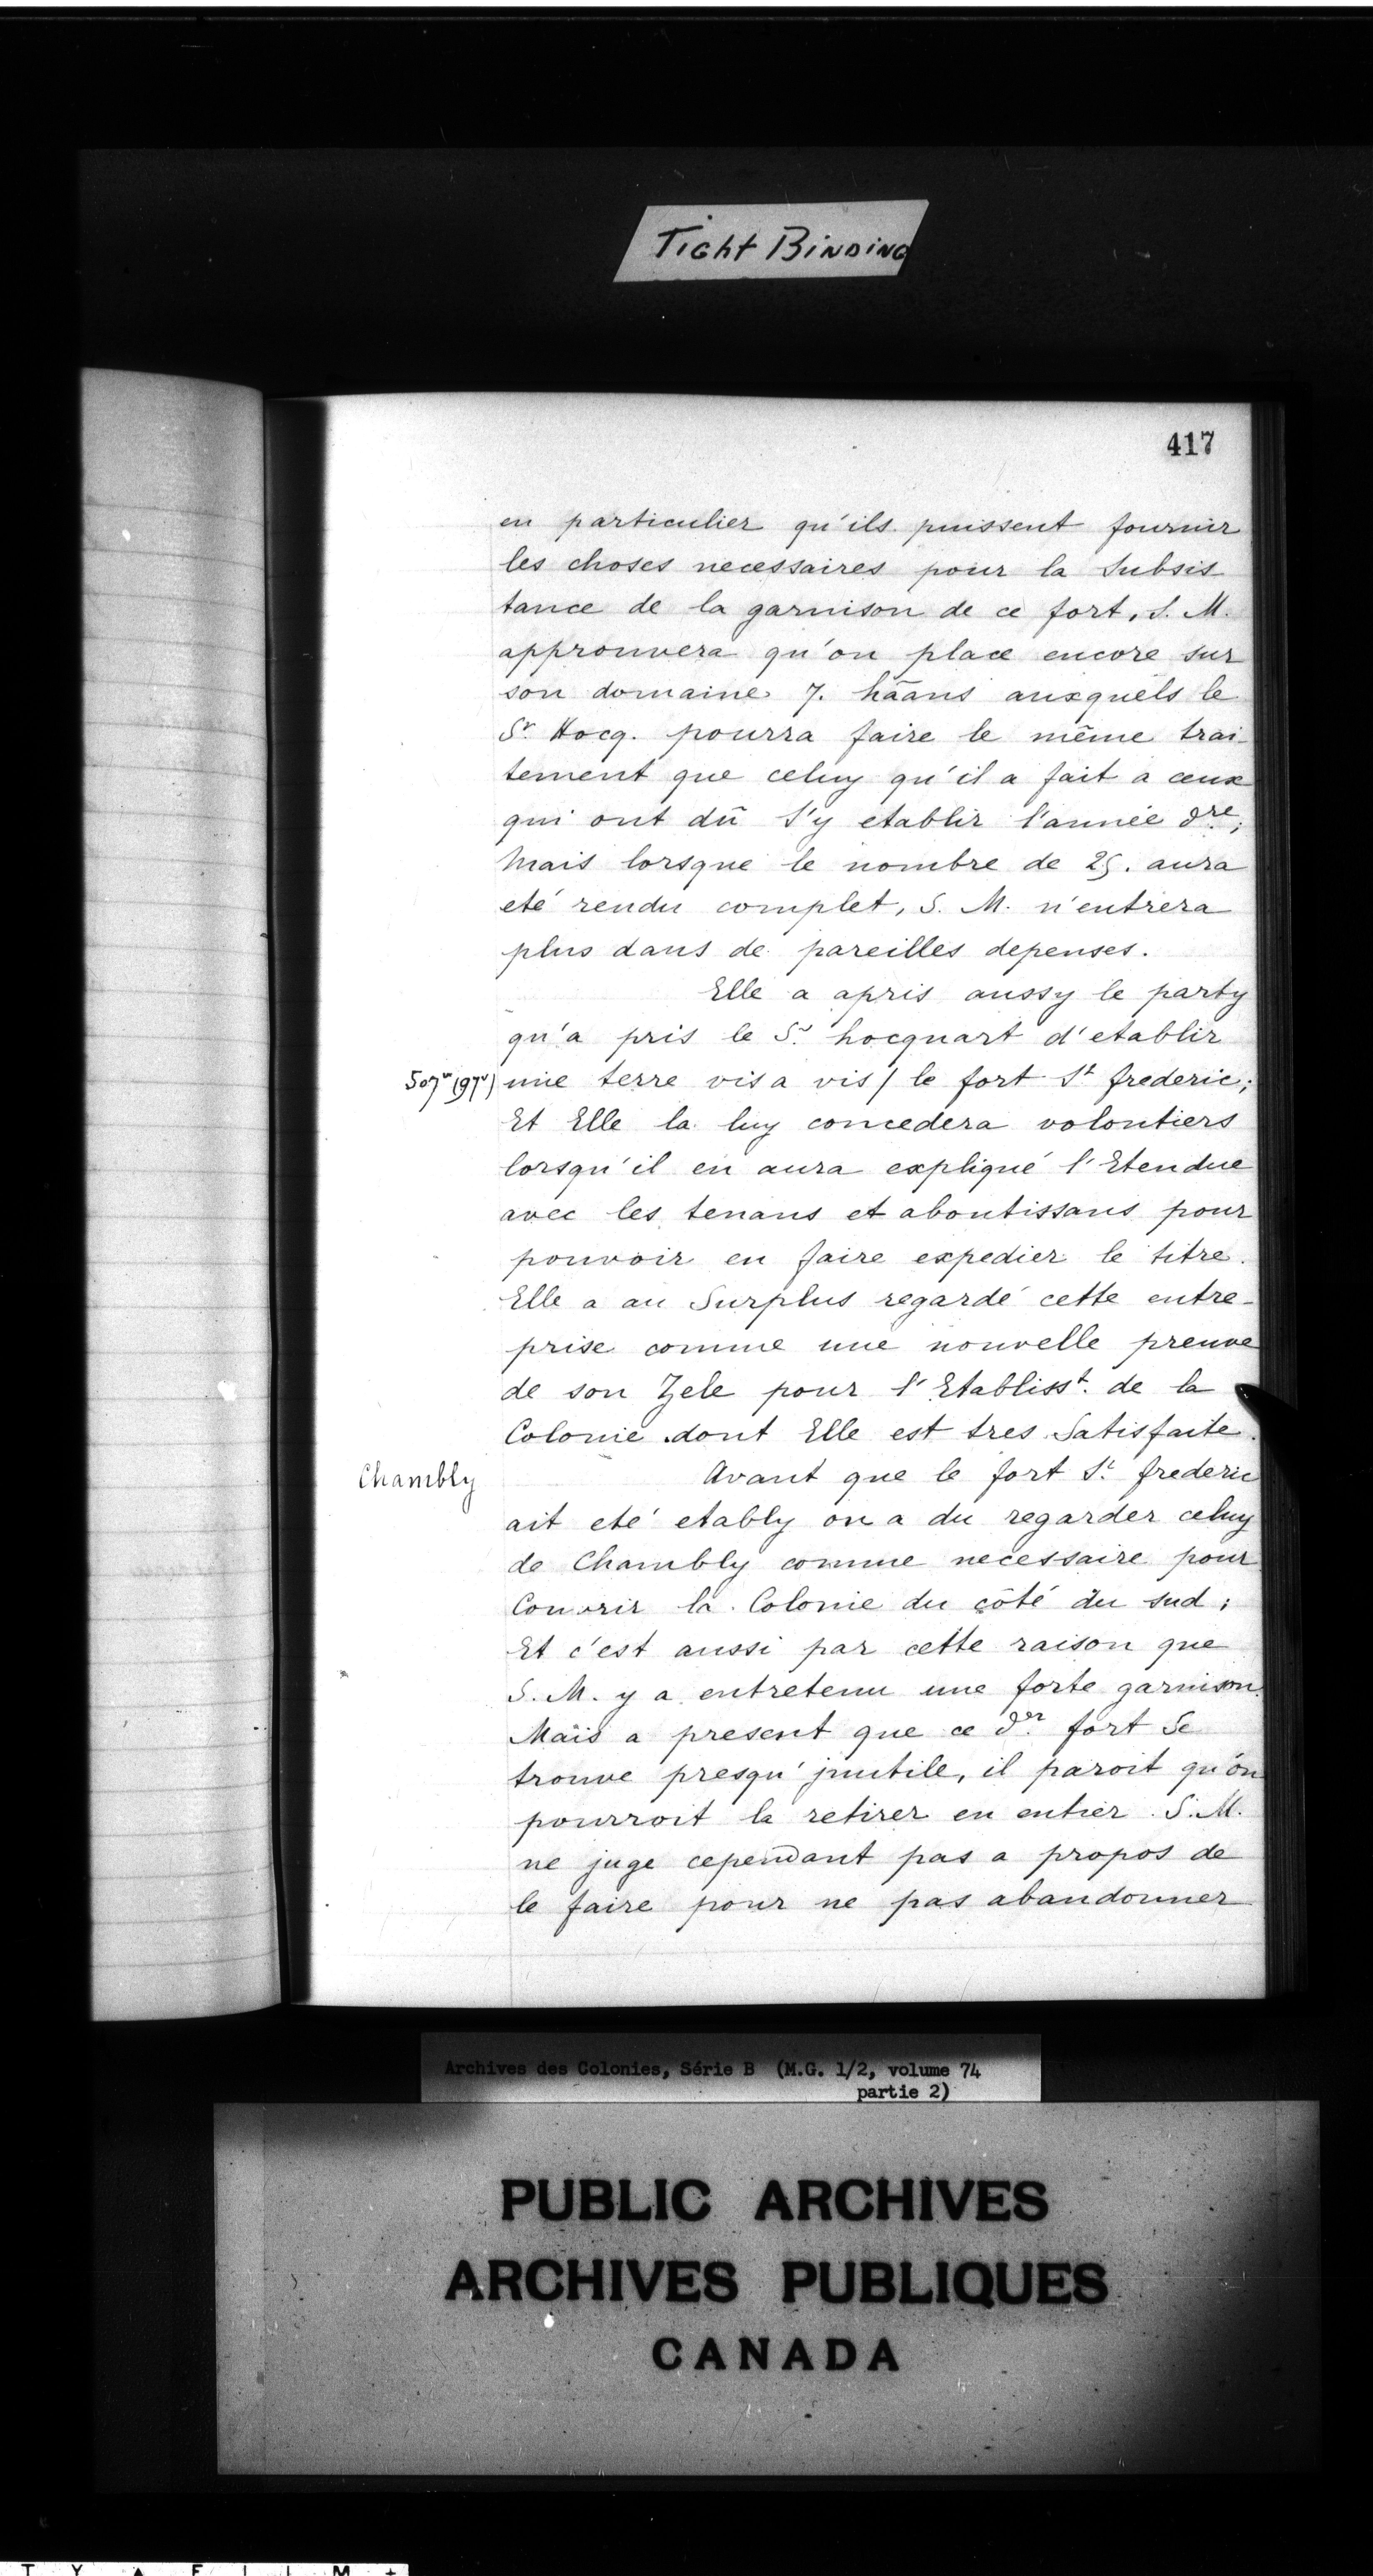 Tight Binding
417
en particulier qu'ils puissent fournir
les choses necessaires pour la Subsis
tance de la garnison de ce fort, S. M.
approuvera qu'on place encore sur
son domaine 7. hãans auxquels le
Sr. Hocq. pourra faire le même trai-
tement que celuy qu'il a fait a ceux
qui ont dû s'y etablir l'année dre;
Mais lorsque le nombre de 25. aura
eté rendu complet, S. M. n'entrera
plus dans de pareilles depenses.
Elle a apris aussy le party
qu'a pris le Sr. hocquart d'etablir
507v (97v) une terre vis a vis / le fort St frederic;
Et Elle la luy concedera volontiers
lorsqu'il en aura expliqué l'Etendue
avec les tenans et aboutissans pour
pouvoir en faire expedier le titre.
Elle a au Surplus regardé cette entre-
prise comme une nouvelle preuve
de son Zele pour l'Etablisst. de la
Colonie dont Elle est tres Satisfaite.
Chambly
Avant que le fort St. frederic
ait eté etably on a du regarder celuy
de Chambly comme necessaire pour
Couvrir la Colonie du côté du sud;
Et c'est aussi par cette raison que
S. M. y a entretenu une forte garnison.
Mais a present que ce der. fort Se
trouve presqu'jnutile, il paroit qu'on
pourroit la retirer en entier. S. M.
ne juge cependant pas a propos de
le faire pour ne pas abandonner
Archives des Colonies, Série B (M.G. 1/2, volume 74
partie 2)
PUBLIC ARCHIVES
ARCHIVES PUBLIQUES
CANADA